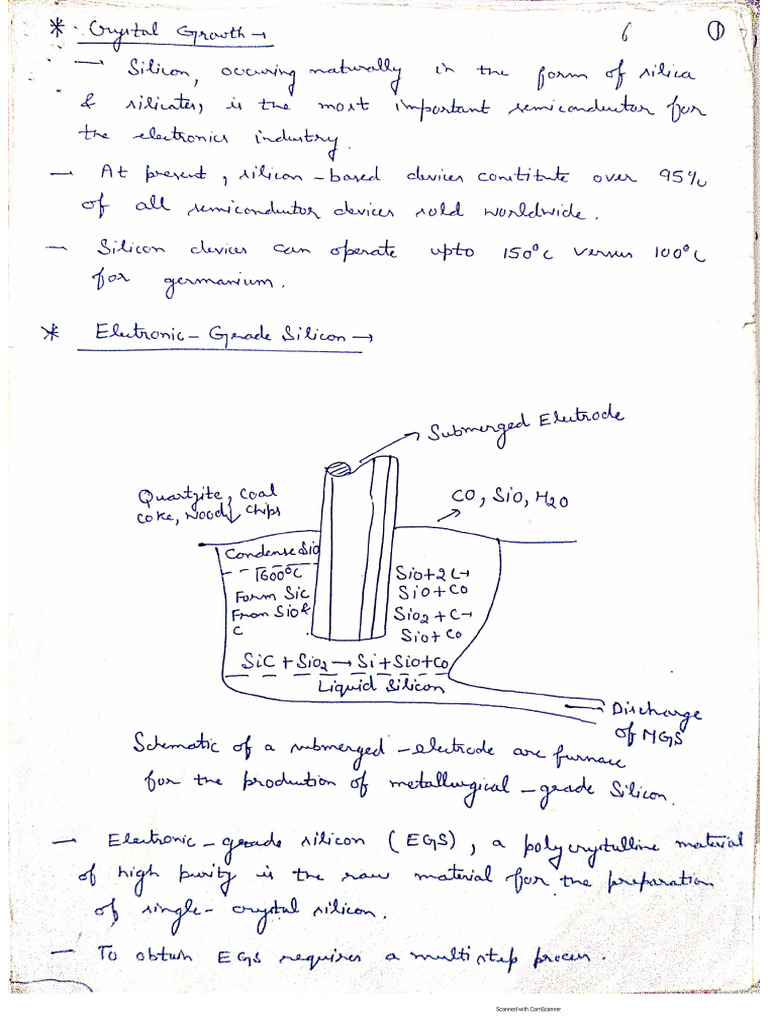 * Crystal Growth →
6
①
— Silicon, occuring naturally in the form of silica
& silicates, is the most important semiconductor for
the electronics industry.
— At present, silicon-based devices constitute over 95%
of all semiconductor devices sold worldwide.
— Silicon devices can operate upto 150°C versus 100°C
for germanium.
* Electronic-Grade Silicon →
Submerged Electrode
Quartzite, Coal
Coke, Wood Chips
CO, SiO, H2O
Condense SiO
1600°C
Form SiC
From SiO &
C
SiO+2C→
SiO+CO
SiO2+C→
SiO+CO
SiC+SiO2→Si+SiO+CO
Liquid Silicon
Discharge
of MGS
Schematic of a submerged-electrode arc furnace
for the production of metallurgical-grade Silicon.
— Electronic-grade silicon (EGS), a polycrystalline material
of high purity is the raw material for the preparation
of single-crystal silicon.
— To obtain EGS requires a multi step process.
Scanned with CamScanner